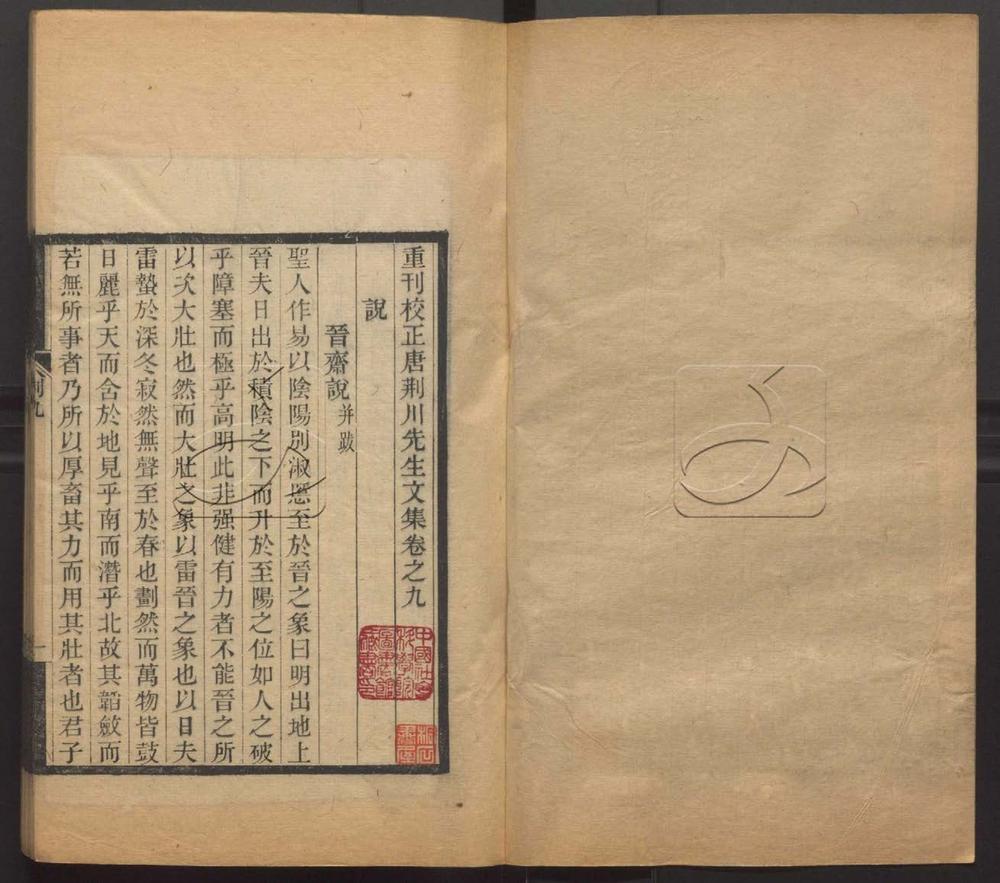 重刊校正唐荆川先生文集卷之九
說
晉齋說并跋
聖人作易以陰陽別淑慝至於晉之象曰明出地上
晉夫日出於積陰之下而升於至陽之位如人之破
乎障塞而極乎高明此非强健有力者不能晉之所
以次大壯也然而大壯之象以雷晉之象也以日夫
雷蟄於深冬寂然無聲至於春也劃然而萬物皆鼓
日麗乎天而含於地見乎南而潛乎北故其韜斂而
若無所事者乃所以厚畜其力而用其壯者也君子